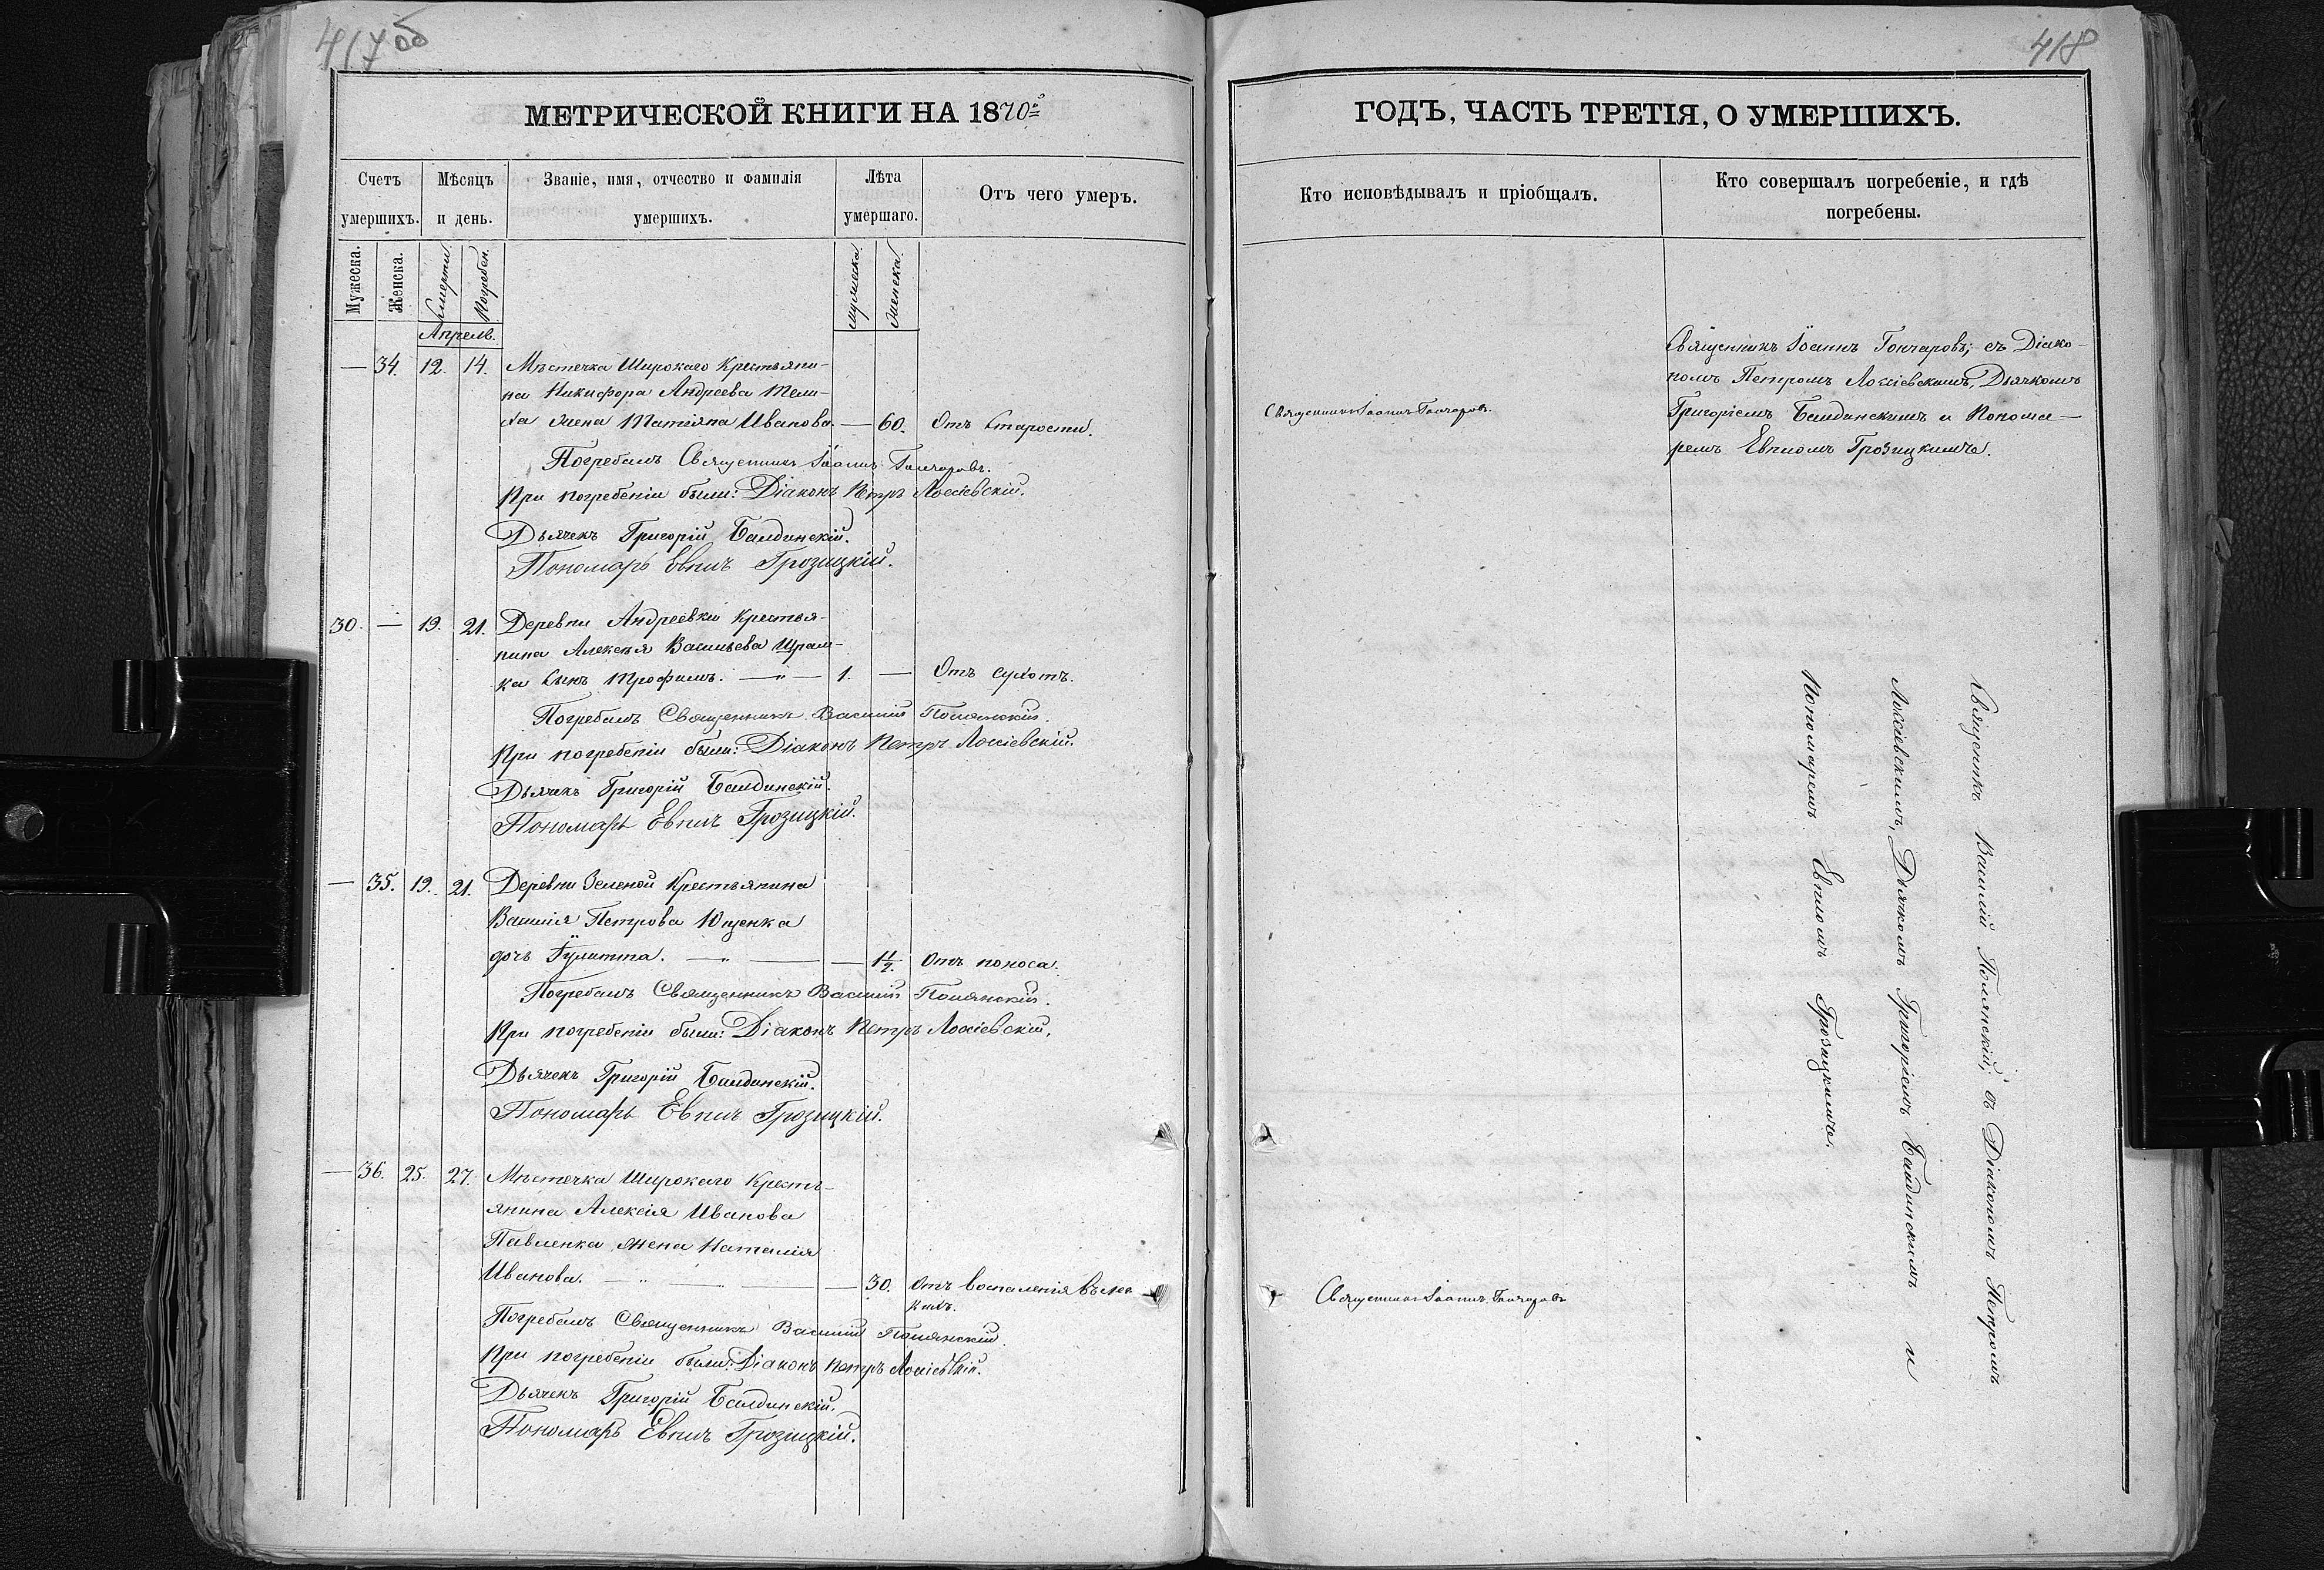 417 об
МЕТРИЧЕСКОЙ КНИГИ НА 1870й
Счетъ умершихъ.
Мѣсяцъ и день.
Званіе, имя, отчество и фамилія умершихъ.
Лѣта умершаго.
Отъ чего умеръ.
Мужеска.
Женска.
Смерти.
Погребен.
Мужеска.
Женска.
Апрель.
— 34. 12. 14. Мѣстечка Широкаго Крестьяни-
на Никифора Андреева
жена Татіяна Иванова. — 60. Отъ старости.
Погребалъ Священникъ Іоаннъ Гончаровъ.
При погребеніи были: Діаконъ Петръ
Дьячекъ Григорій Балдинскій.
Пономарь Евплъ Грозицкій.
30. — 19. 21. Деревни Андреевки Крестья-
нина Алексѣя Васильева Шрам-
ка сынъ Трофимъ. — " — 1. — Отъ сухотъ.
Погребалъ Священникъ Василій Полянскій.
При погребеніи были: Діаконъ Петръ
Дьячекъ Григорій Балдинскій.
Пономарь Евплъ Грозицкій.
— 35. 19. 21. Деревни Зеленой Крестьянина
Василія Петрова Ющенка
дочь Іулитта. — " — — 1½ Отъ поноса.
Погребалъ Священникъ Василій Полянскій.
При погребеніи были: Діаконъ Петръ
Дьячекъ Григорій Балдинскій.
Пономарь Евплъ Грозицкій.
— 36. 25. 27. Мѣстечка Широкаго Кресть-
янина Алексія Иванова
Павленка жена Наталія
Иванова. — " — — 30. Отъ воспаленія въ лег-
кихъ.
Погребалъ Священникъ Василій Полянскій
При погребеніи были: Діаконъ Петръ
Дьячекъ Григорій Балдинскій.
Пономарь Евплъ Грозицкій.
418
ГОДЪ, ЧАСТЬ ТРЕТІЯ, О УМЕРШИХЪ.
Кто исповѣдывалъ и пріобщалъ.
Кто совершалъ погребеніе, и гдѣ
погребены.
Священникъ Іоаннъ Гончаровъ.
Священникъ Іоаннъ Гончаровъ; съ Діако-
номъ Петромъ Дьячкомъ
Григоріемъ Балдинскимъ и Понома-
ремъ Евпломъ Грозицкимъ.
Священникъ Василій Полянскій; съ Діакономъ Петромъ
Дьячкомъ Григоріемъ Балдинскимъ и
Пономаремъ Евпломъ Грозицкимъ.
Священникъ Іоаннъ Гончаровъ